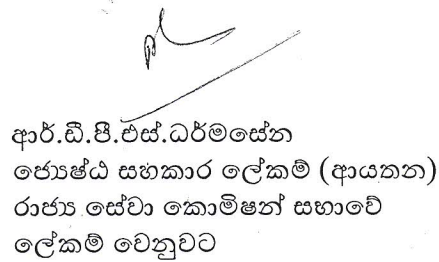 ආර්.ඩී.පී.එස්.ධර්මසේන
ජ්‍යෙෂ්ඨ සහකාර ලේකම් (ආයතන)
රාජ්‍ය සේවා කොමිෂන් සභාවේ
ලේකම් වෙනුවට